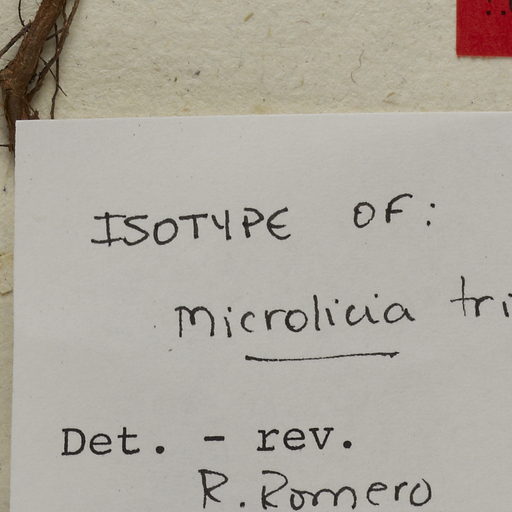 ISOTYPE OF:
Microlicia tri
Det. - rev.
R. Romero